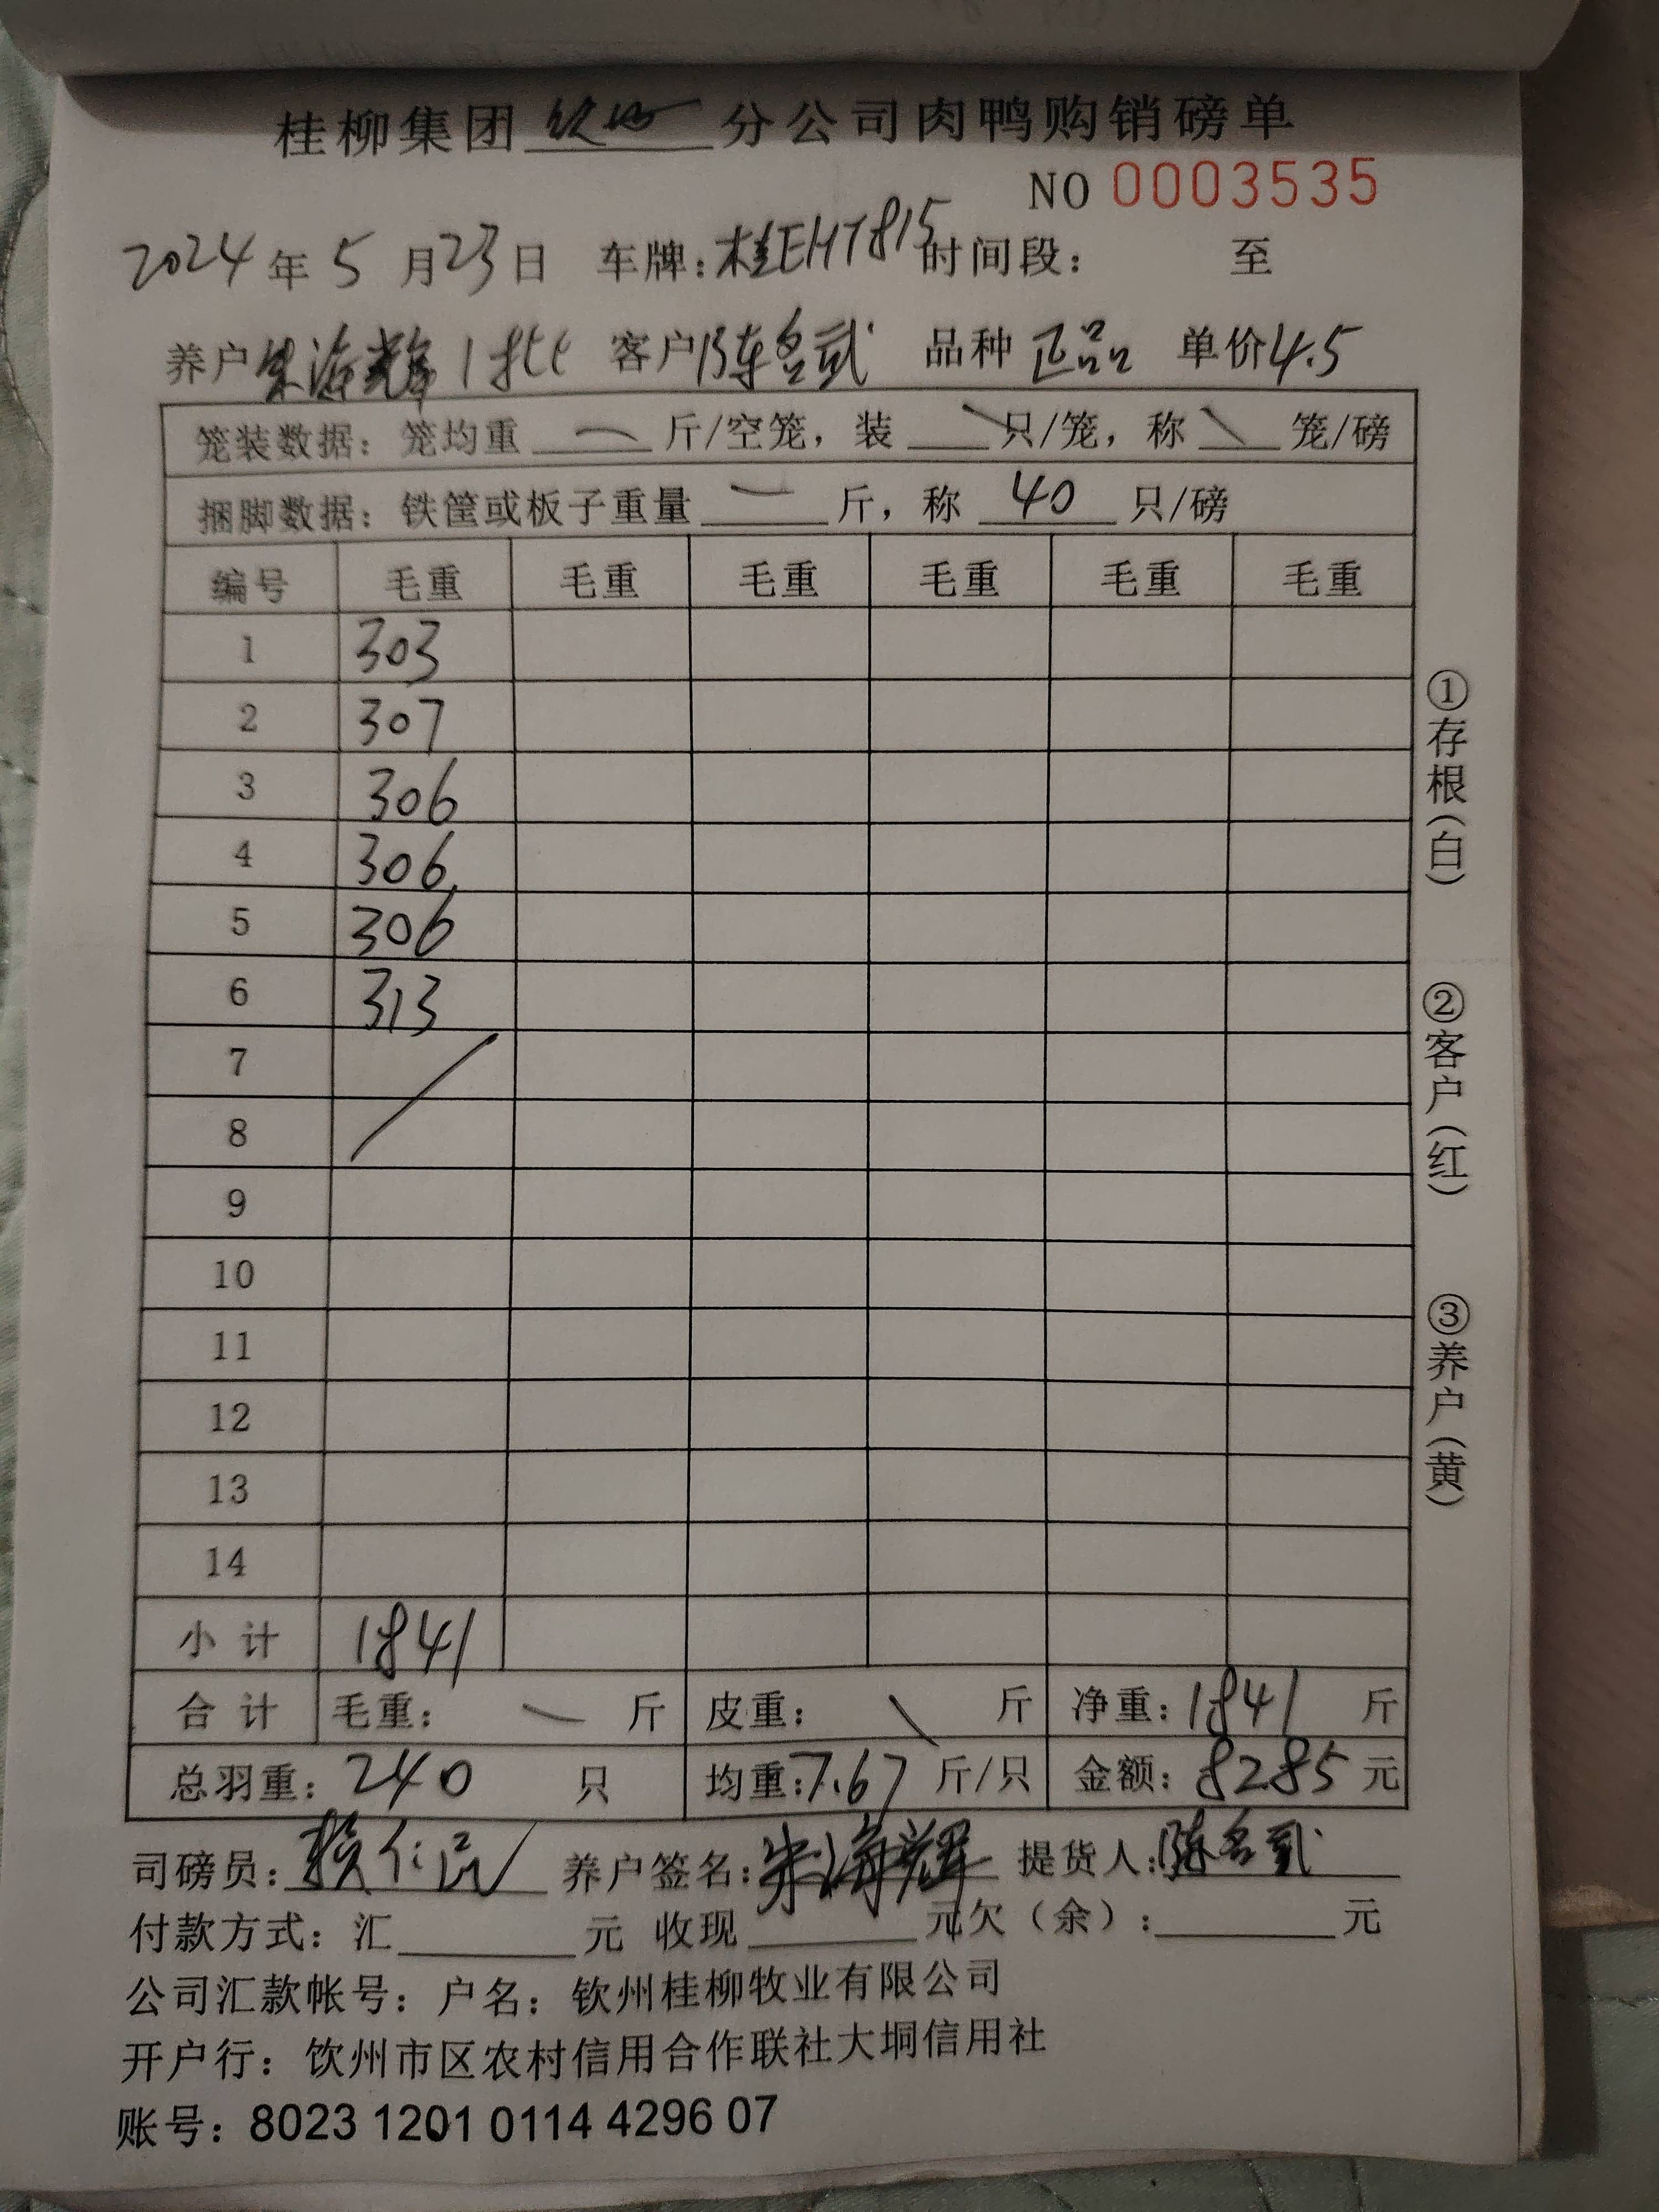 桂柳集团钦州分公司肉鸭购销磅单
NO 0003535
2024年5月23日 车牌:桂EHT815时间段: 至
养户朱海辉1批 客户陈名贰 品种正品 单价4.5
笼装数据:笼均重 — 斤/空笼,装 \ 只/笼,称 \ 笼/磅
捆脚数据:铁筐或板子重量 — 斤,称 40 只/磅
编号 毛重 毛重 毛重 毛重 毛重 毛重
1 303
2 307
3 306
4 306
5 306
6 313
7
8
9
10
11
12
13
14
小计 1841
合计 毛重: — 斤 皮重: \ 斤 净重:1841 斤
总羽重:240 只 均重:7.67 斤/只 金额:8285元
司磅员: 养户签名:朱海辉 提货人:陈名贰
付款方式:汇______元 收现______元欠(余):______元
公司汇款帐号:户名:钦州桂柳牧业有限公司
开户行:钦州市区农村信用合作联社大垌信用社
账号:8023 1201 0114 4296 07
①存根(白)
②客户(红)
③养户(黄)